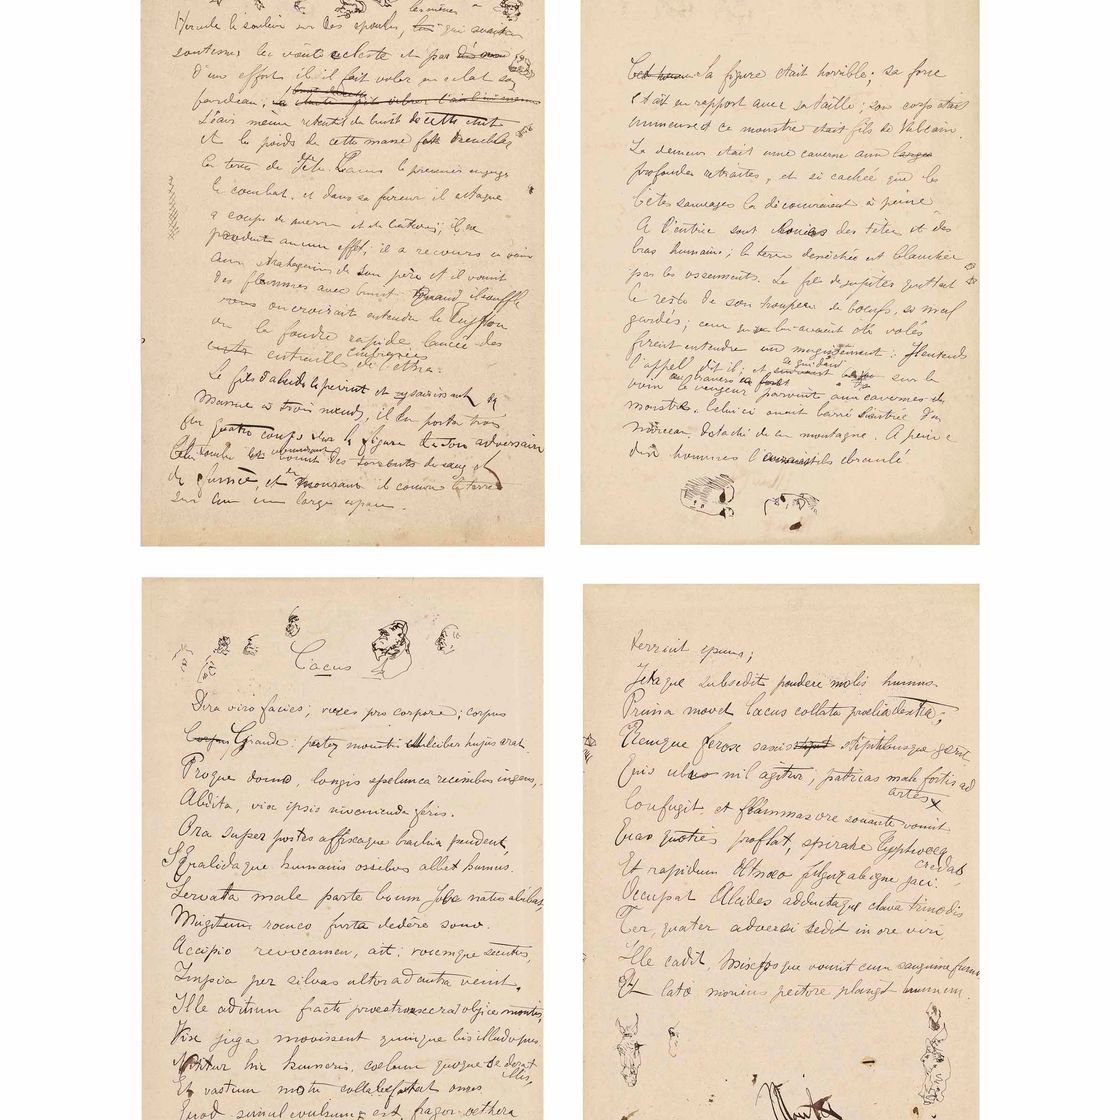 Hercule le soulève sur ses épaules, lui qui
soutenu la voûte céleste et par
D'un effort il fait voler en éclat
fardeau;
L'éais même retentit du bruit de cette
et le poids de cette masse fait trembler
la terre. Cacus le premier engage
le combat, et dans sa fureur il attaque
à coups de et de; il ne
produit aucun effet, il a recours en vain
aux stratagèmes de son père et il vomit
des flammes avec bruit. Quand il souffle
on croirait entendre le Typhon
ou la foudre rapide lancée des
entrailles de l'Etna.
Le fils d'alcide le prévint et saisissant sa
Massue à trois nœuds, il la porta trois
ou quatre coups sur la figure de son adversaire
Celui tombe et vomit des torrents de sang et
de fumée, et en mourant il couvre la terre
sur un large espace.
la figure était horrible; sa force
était en rapport avec sa taille; son corps était
immense et ce monstre était fils de Vulcain.
Sa demeure était une caverne aux larges
profondes retraites, et si cachée que les
bêtes sauvages la découvriraient à peine
A l'entrée sont clouées des têtes et des
bras humains; la terre desséchée est blanchie
par les ossements. Le fils de jupiter quittait
le reste de son troupeau de bœufs, si mal
gardés; ceux qu'on lui avaient été volés
firent entendre un mugissement: J'entends
l'appel dit il; et suivant sur la
voix à travers la forêt le vengeur parvint aux cavernes du
monstre. Celui ci avait barré l'entrée d'un
morceau détaché de la montagne. A peine
dix hommes l' ébranlé
Cacus
Dira viro facies; vires pro corpore; corpus
Corpus Grande: pater monstri Mulciber hujus erat.
Proque domo, longis spelunca recessibus ingens,
Abdita, vix ipsis invenienda feris.
Ora super postes affixaque brachia pendent,
Squalidaque humanis ossibus albet humus.
Servata male parte boum Jove natus abibat,
Mugitum rauco furta dedere sono.
Accipio revocamen, ait; vocemque secutus,
Impia per silvas ultor ad antra venit.
Ille aditum fracti praestruxerat objice montis,
Vix juga movissent quinque bis illud opus
Nititur hic humeris, coelum quoque sederat
illis,
Et vastum motu collabefactat onus
Quod simul evulsum est fragor aethera
terruit ipsum;
Ictaque subsedit pondere molis humus.
Prima movet Cacus collata proelia dextra;
Remque ferox saxis stipitibusque gerit
Quis ubi nil agitur, patrias male fortis ad
artes
Confugit, et flammas ore sonante vomit
Quas quoties proflat, spirare Typhoea
credas,
Et rapidum Etnaeo fulgur ab igne jaci.
Occupat Alcides adductaque clava trinodis
Ter, quater adversi sedit in ore viri
Ille cadit, mixtosque vomit cum sanguine fumos
Et lato moriens pectore plangit humum.